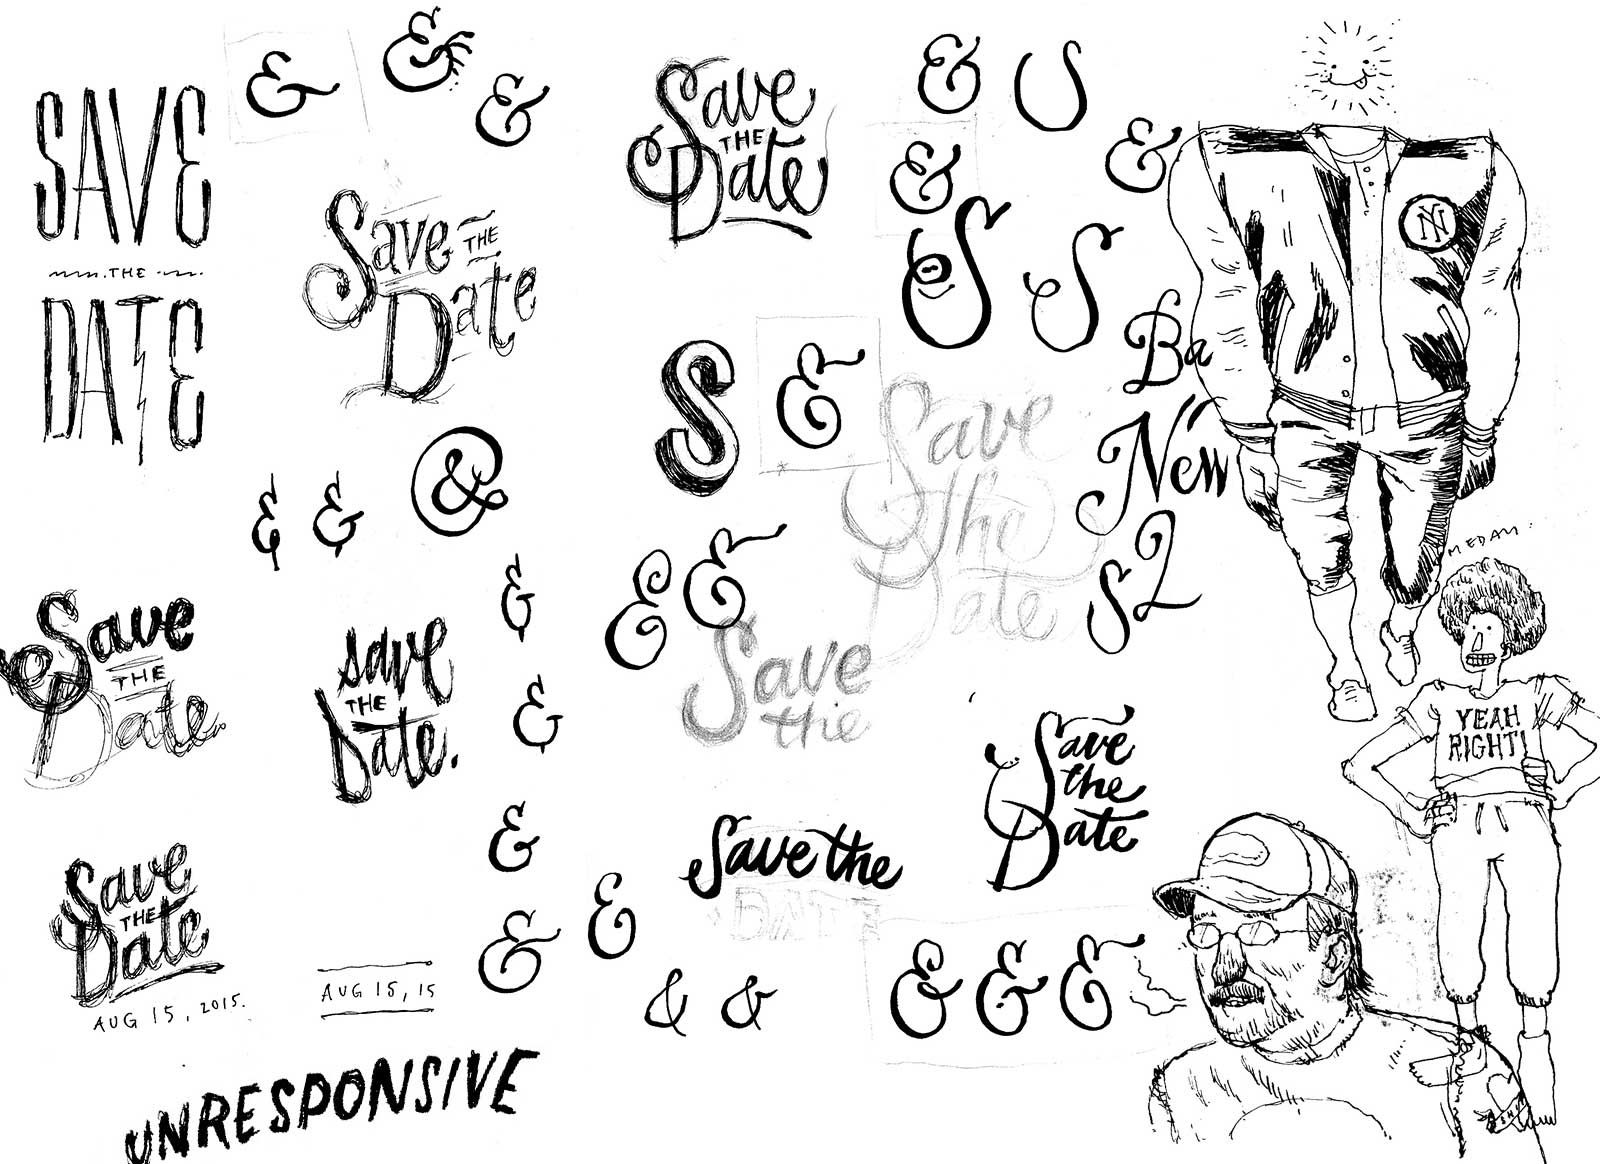 SAVE
THE
DATE
&
&
&
Save
THE
Date
Save
THE
Date
&
S
&
&
S
S
NY
Ba
New
S2
S
&
Save
the
Date
&
&
&
&
&
&
&
Save
the
Save
THE
Date.
save
THE
Date.
&
Save
the
Date
Save the
DATE
Save
THE
Date
AUG 15, 2015.
AUG 15, 15
&
&
&
&
&
&
&
&
UNRESPONSIVE
MEDAN
YEAH
RIGHT!